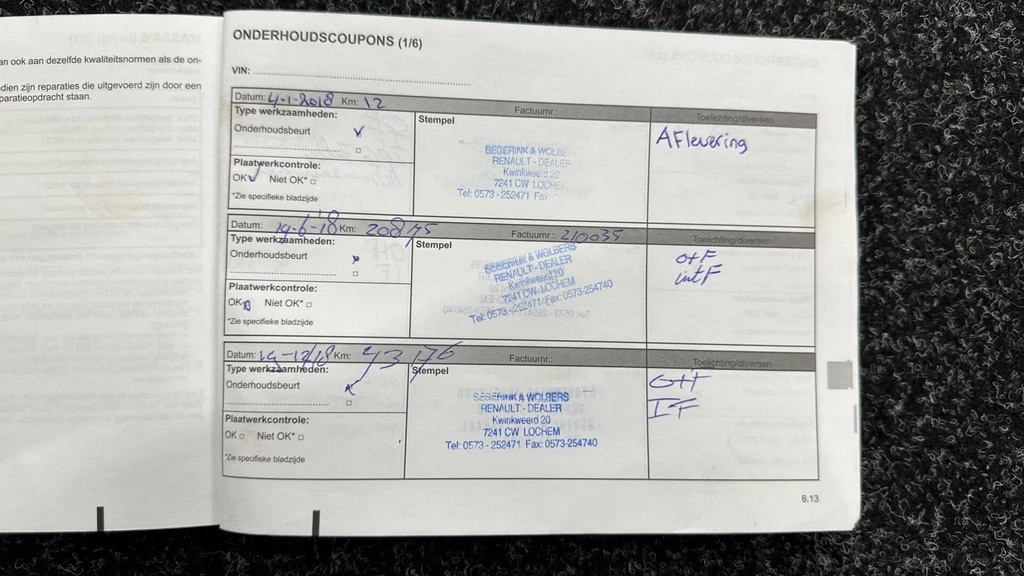 an ook aan dezelfde kwaliteitsnormen als de on-
dien zijn reparaties die uitgevoerd zijn door een
paratieopdracht staan.
ONDERHOUDSCOUPONS (1/6)
VIN:
Datum: 4-1-2018 Km: 12 Factuurnr.: Toelichting/diversen
Type werkzaamheden:
Stempel
Onderhoudsbeurt
Plaatwerkcontrole:
OK Niet OK*
*Zie specifieke bladzijde
SEGERINK & WOLBERS
RENAULT - DEALER
Kwinkweerd 20
7241 CW LOCHEM
Tel: 0573 - 252471 Fax
AFlevering
Datum: 19-6-'18 Km: 20875 Factuurnr.: 210035 Toelichting/diversen
Type werkzaamheden:
Stempel
Onderhoudsbeurt
Plaatwerkcontrole:
OK Niet OK*
*Zie specifieke bladzijde
SEGERINK & WOLBERS
RENAULT - DEALER
Kwinkweerd 20
7241 CW LOCHEM
Tel: 0573 - 252471 Fax: 0573-254740
o+F
intF
Datum: 19-12/18 Km: 43176 Factuurnr.: Toelichting/diversen
Type werkzaamheden:
Stempel
Onderhoudsbeurt
Plaatwerkcontrole:
OK Niet OK*
*Zie specifieke bladzijde
SEGERINK & WOLBERS
RENAULT - DEALER
Kwinkweerd 20
7241 CW LOCHEM
Tel: 0573 - 252471 Fax: 0573-254740
O+F
IF
6.13